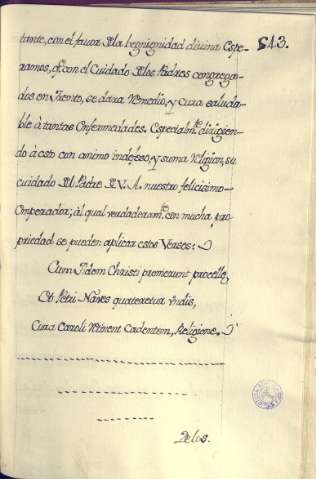 tante, con el favor Dla begnignidad divina Espe-
ramos, q̃ con el Cuidado Dlos Padres congrega-
dos en Trento, se dara Remedio, y cura saluda-
ble à tantas Enfermedades. Especialm.te dirigien-
do à esto con animo indefeso, y suma Religion, su
cuidado Dl Padre D.V.A. nuestro felicisimo
Emperador; àl qual verdaderam.te con mucha pro-
priedad se pueden aplicar estos Verses:
Cum Fidem Christi premerent procelle,
Et Petri Navis quateretur Vndis,
Cura Caroli Retinent Cadentem, Religione.
543.
Delos.